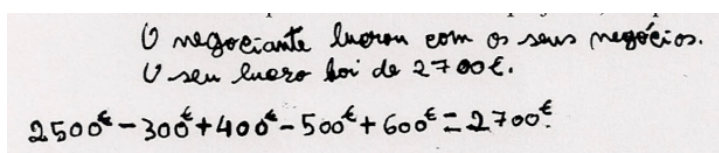 O negociante lucrou com os seus negócios.
O seu lucro foi de 2700€.
2500€-300€+400€-500€+600€=2700€.